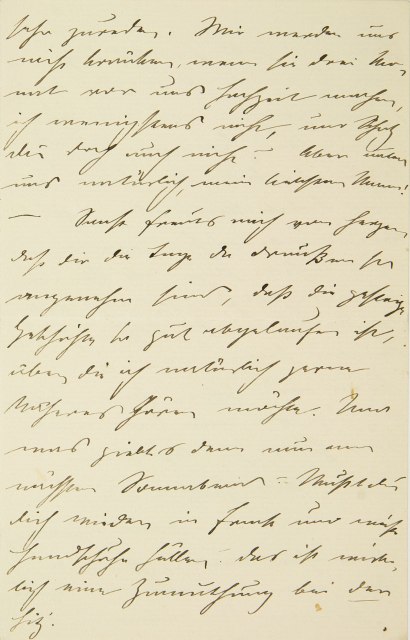 sehr zureden. Wir werden uns
nicht kränken, wenn sie drei Mo-
nat vor uns Hochzeit machen,
ich wenigstens nicht, und Schatz
du doch auch nicht – Aber unter
uns natürlich, mein liebster Mann!
— Sonst freut's mich von Herzen
daß dir die Tage da draußen so
angenehm sind, daß die gestrige
Geschichte so gut abgelaufen ist,
über die ich natürlich gerne
Näheres hören möchte. Und
was giebt's denn nun am
nächsten Sonnabend – Mußt du
dich wieder in Frack und weiße
Handschuhe hüllen? das ist wirk-
lich eine Zumuthung bei der
Hitz.